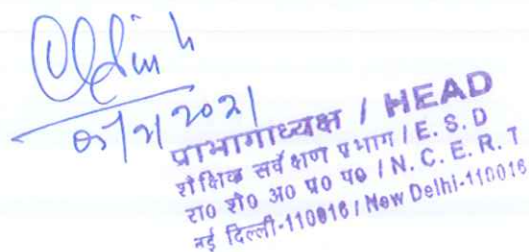 प्राभागाध्यक्ष / HEAD
शैक्षिक सर्वेक्षण प्रभाग / E. S. D
रा० शै० अ० प्र० प० / N. C. E. R. T
नई दिल्ली-110016 / New Delhi-110016